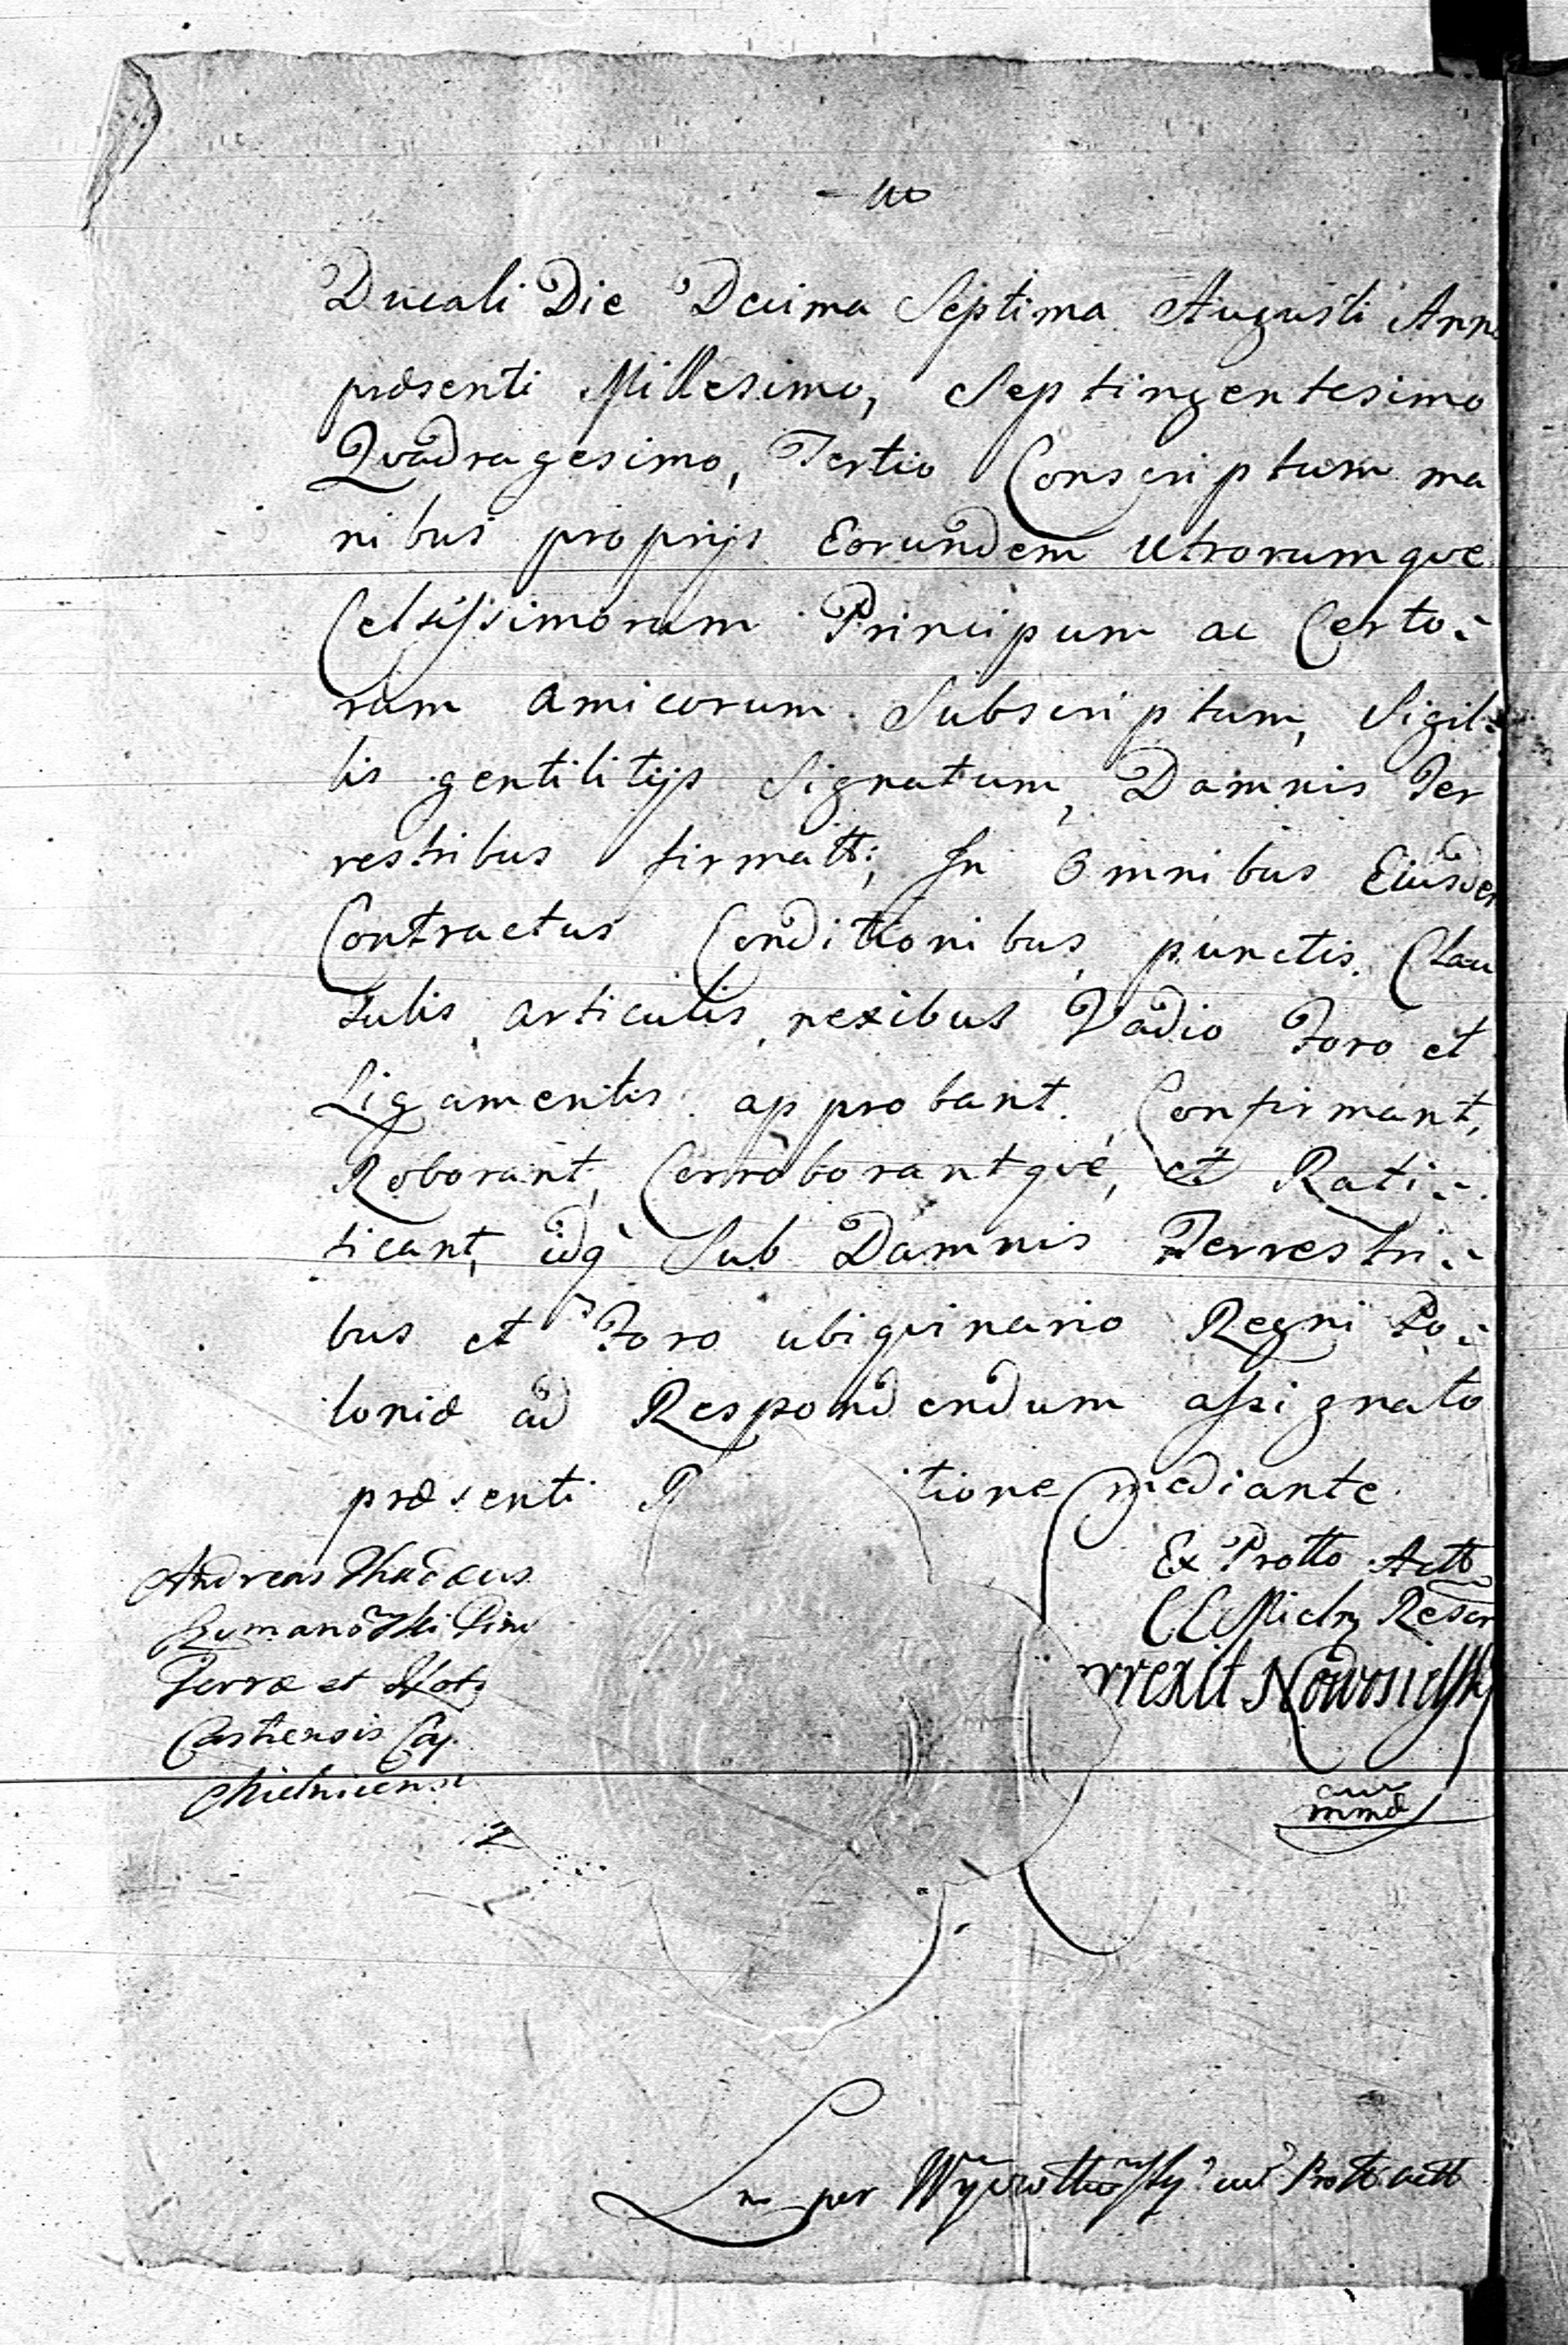 Ducali Die Decima Septima Augusti Ann
præsenti Millesimo, Septingentesimo
Qvadragesimo, Tertio Conscriptum ma
nibus proprijs Eorundem Utrorumqve
Celsissimorum Principum ac Certo:
rum amicorum Subscriptum, Sigil:
lis gentilitijs Signatum, Damnis Ter
restribus firmatt; In Omnibus Eiusdem
Contractus Conditionibus, punctis, Clau
sulis, articulis, nexibus Vadio Foro et
Ligamentis approbant, Confirmant,
Roborant, Corroborantqve, et Rati:
ficant, idq Sub Damnis Terrestri:
bus et Foro ubiqvinario Regni Po:
loniæ ad Respondendum assignato
præsenti R tione mediante.
Andreas Thadæus
Terræ et
Castrensis Cap
Mielnicens
Ex Protto Actt
rrexit Nowosielsky
mmd
per